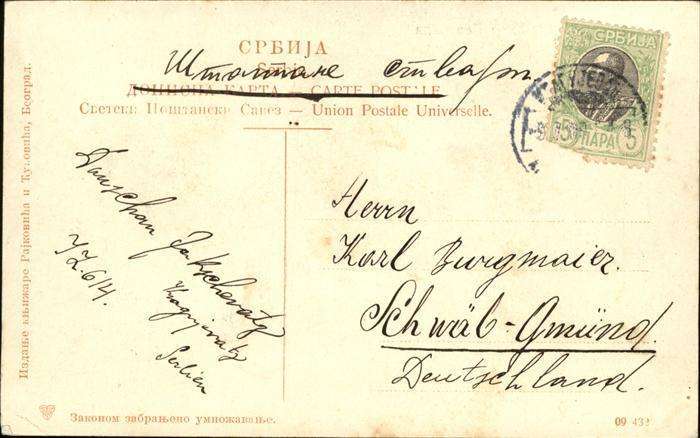 СРБИЈА
Штампане ствари
Serbie
ДОПИСНА КАРТА — CARTE POSTALE
Светски Поштански Савез — Union Postale Universelle.
СРБИЈА
5 ПАРА 5
Herrn
Karl Burgmaier.
Schwäb-Gmünd.
Deutschland.
Duschan
Kragujevatz
Serbien
Издање књижаре Рајковића и Ћуковића, Београд.
Законом забрањено умножавање.
09 432